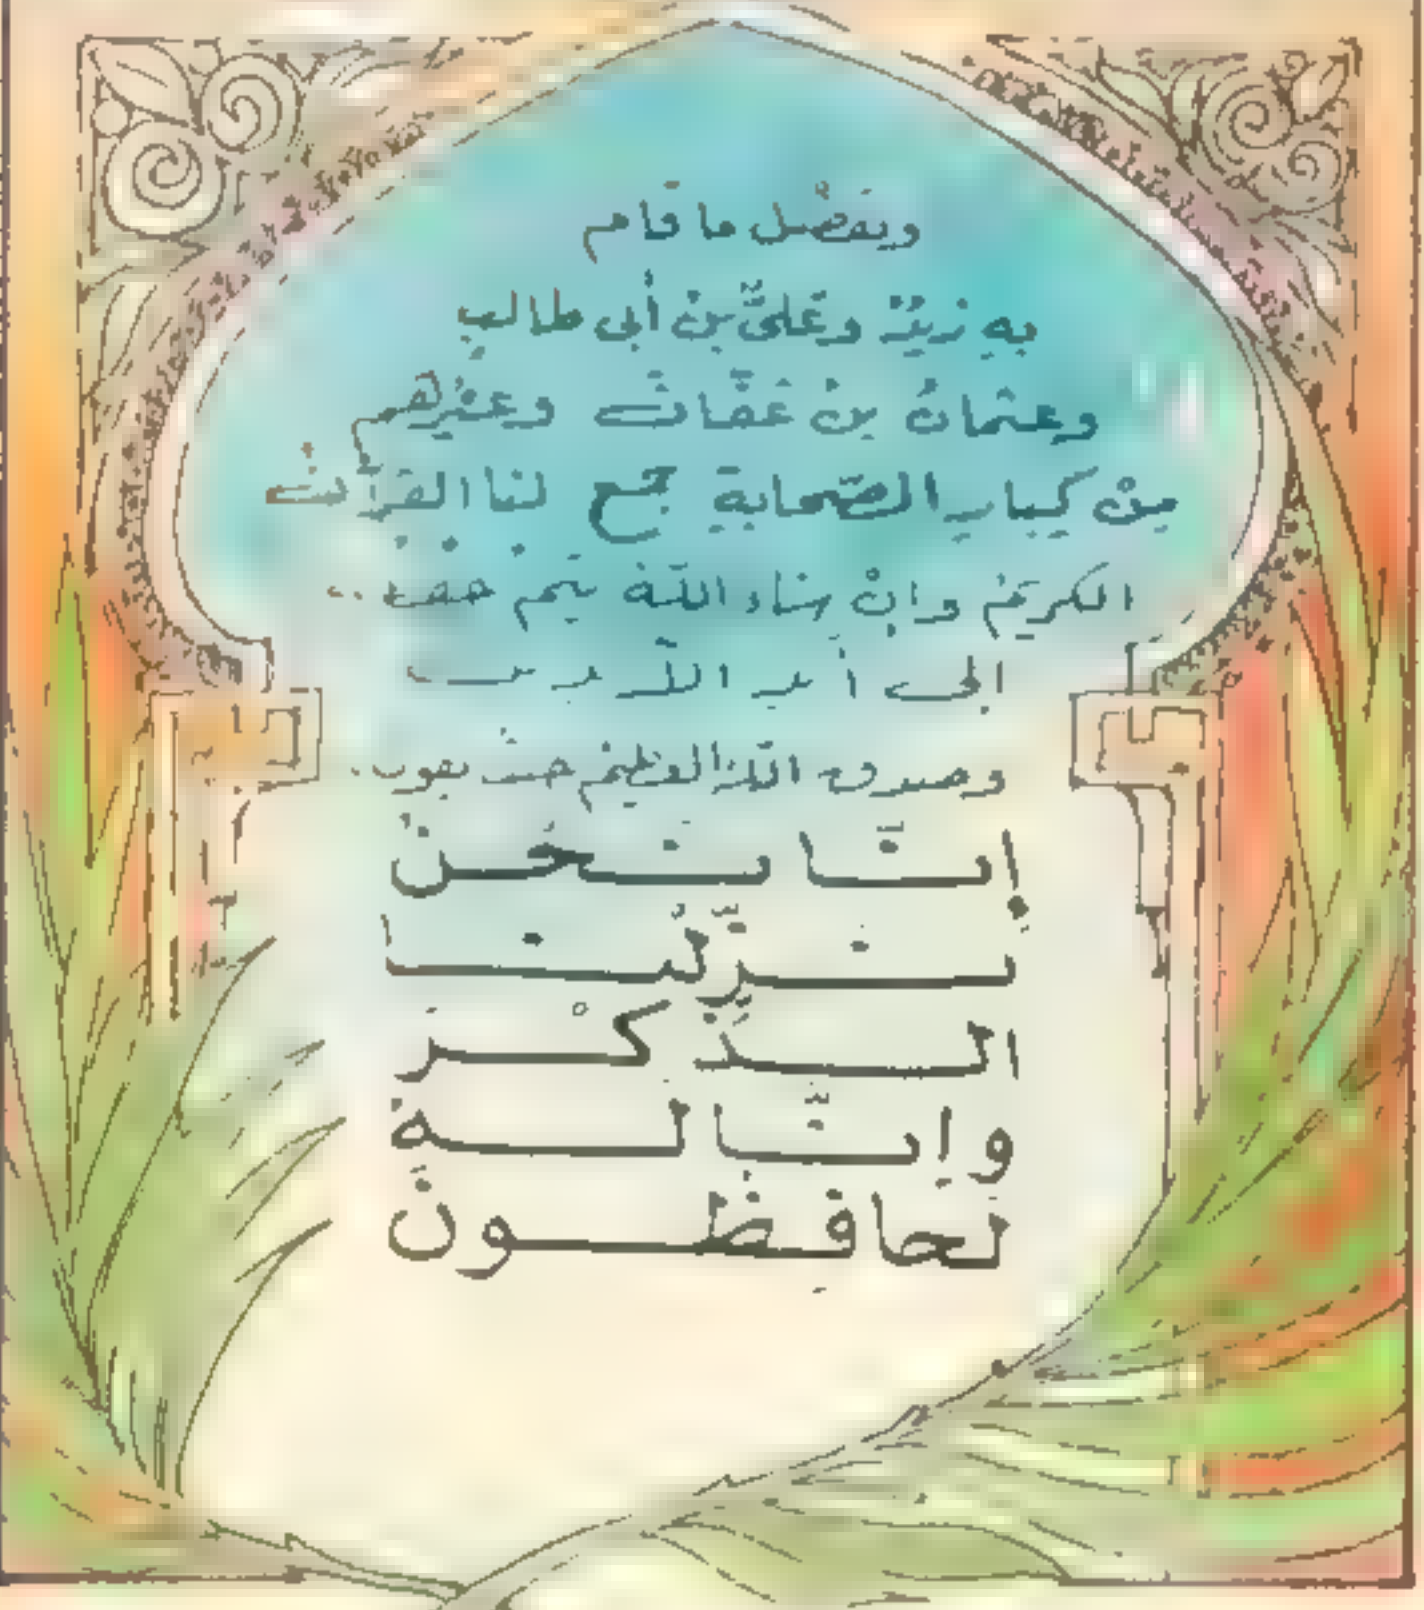 وبفضل ما قام
به زيدٌ وعليُّ بنُ أبي طالبٍ
وعثمانُ بنُ عَفَّانَ وغيْرِهم
مِنْ كِبارِ الصّحابةِ جمع لنا القرآنَ
الكريمَ وإنْ شاء اللّهُ يتم حفظ..
إلى أبد الآبدين
وصدق اللّهُ العظيم حيث يقول.
إِنَّا نَحْنُ
نَزَّلْنَا
الذِّكْرَ
وَإِنَّا لَهُ
لَحَافِظُونَ